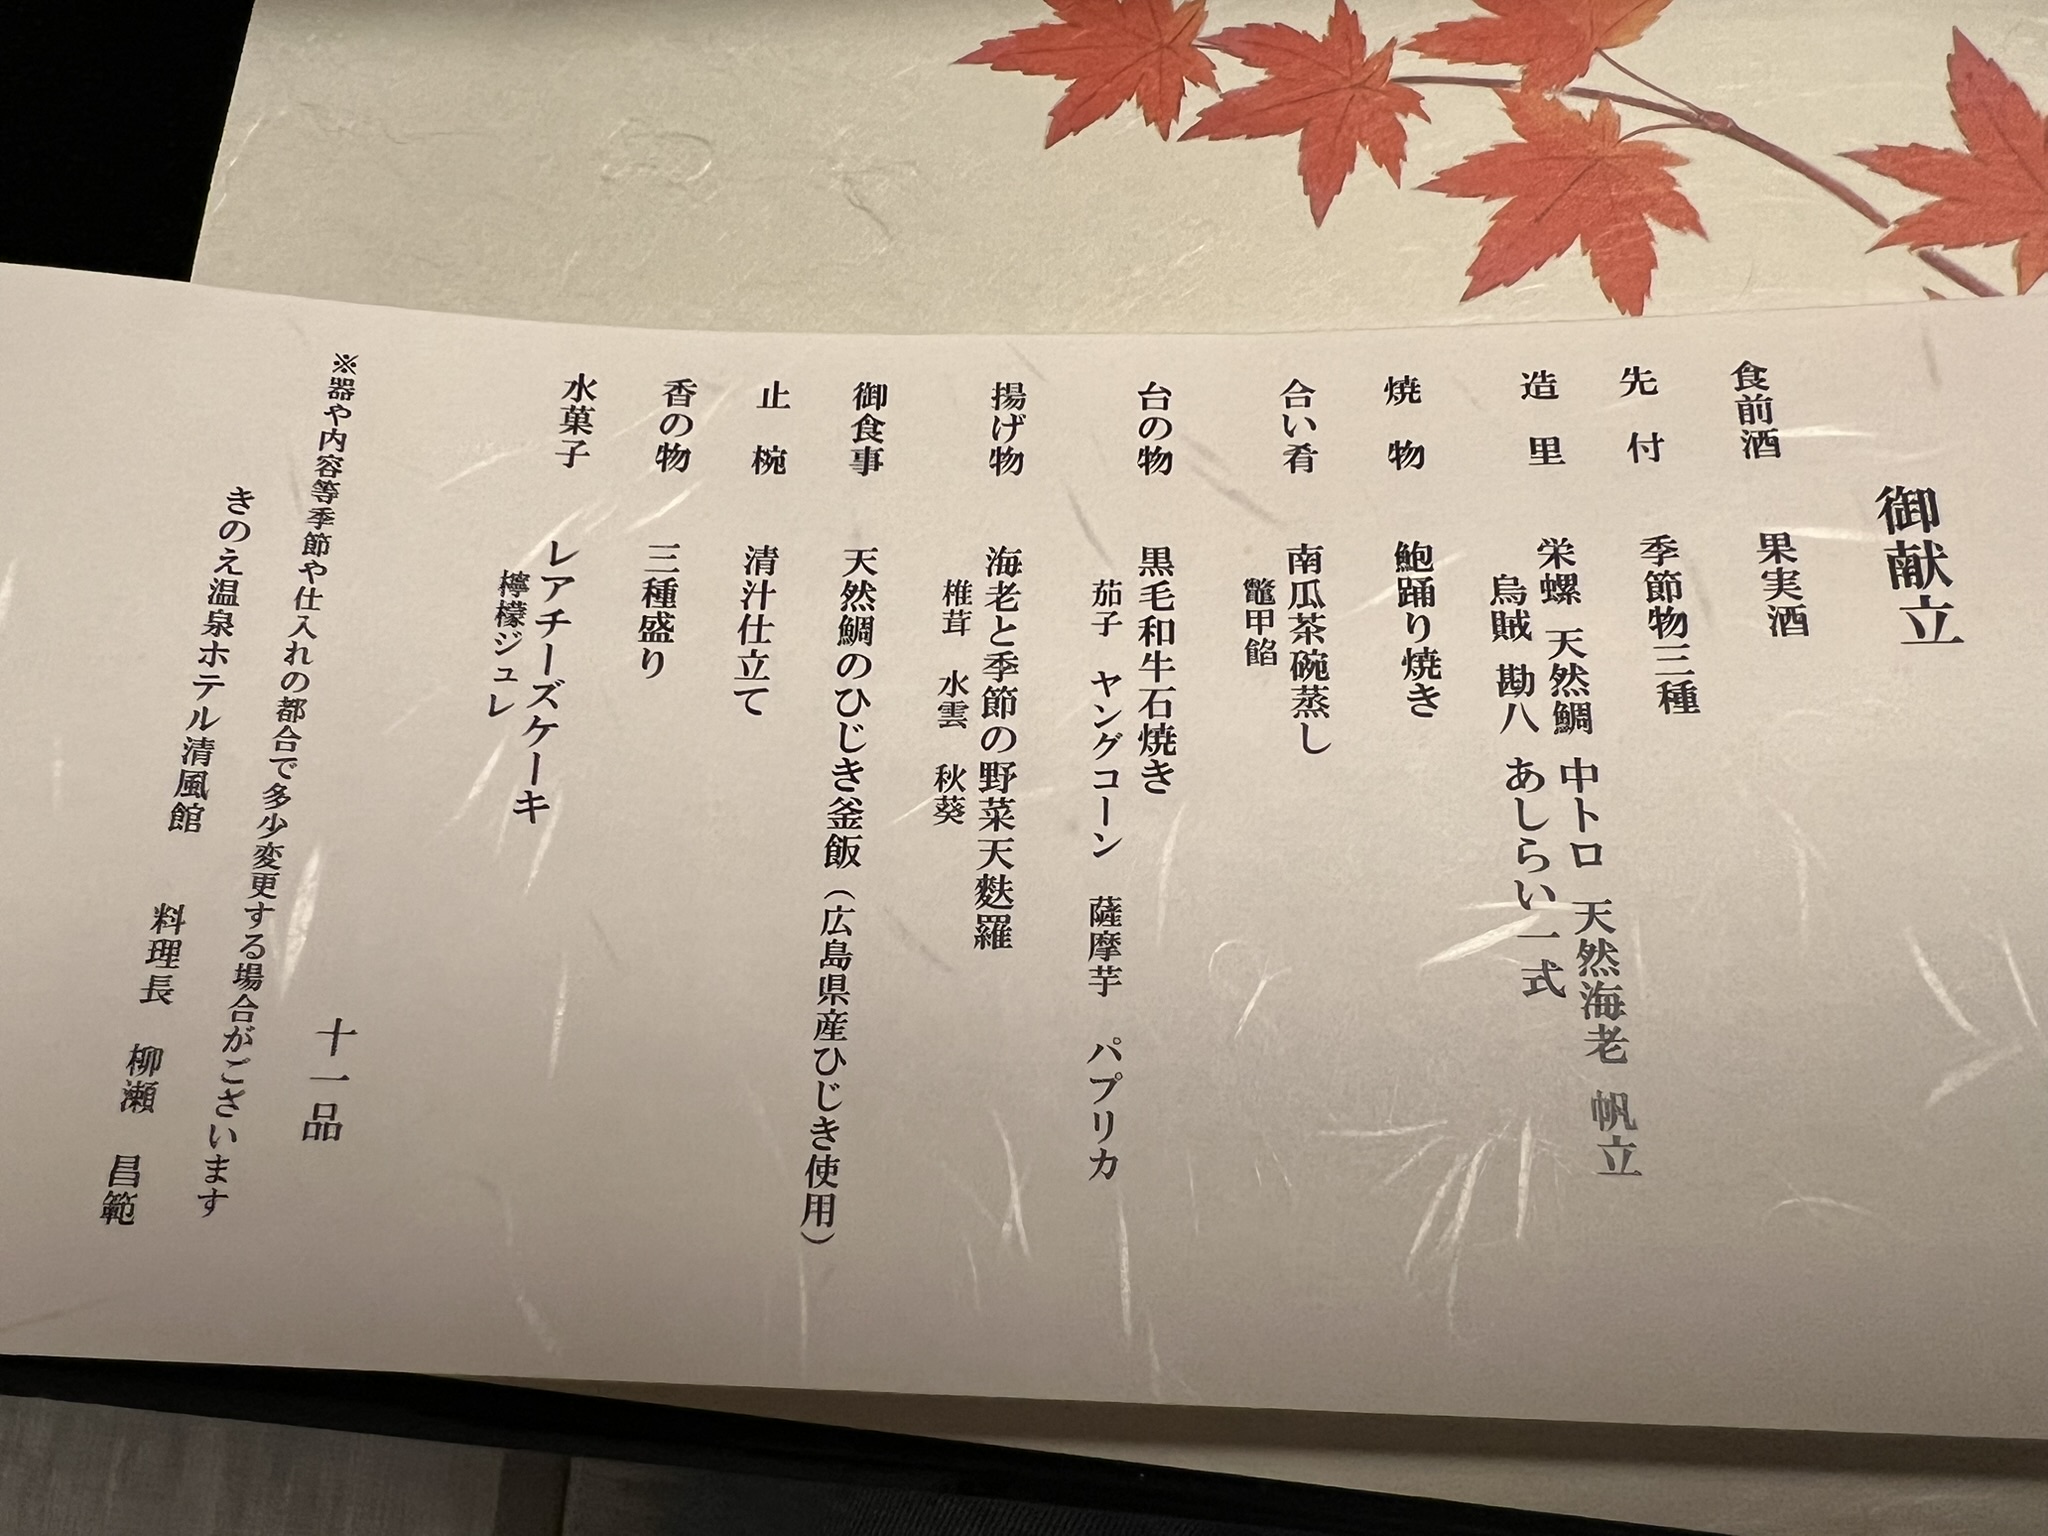 御献立
食前酒 果実酒
先付 季節物三種
造里 栄螺 天然鯛 中トロ 天然海老 帆立
烏賊 勘八 あしらい一式
焼物 鮑踊り焼き
合い肴 南瓜茶碗蒸し
鼈甲餡
台の物 黒毛和牛石焼き
茄子 ヤングコーン 薩摩芋 パプリカ
揚げ物 海老と季節の野菜天麩羅
椎茸 水雲 秋葵
御食事 天然鯛のひじき釜飯（広島県産ひじき使用）
止椀 清汁仕立て
香の物 三種盛り
水菓子 レアチーズケーキ
檸檬ジュレ
十一品
※器や内容等季節や仕入れの都合で多少変更する場合がございます
きのえ温泉ホテル清風館 料理長 柳瀬 昌範